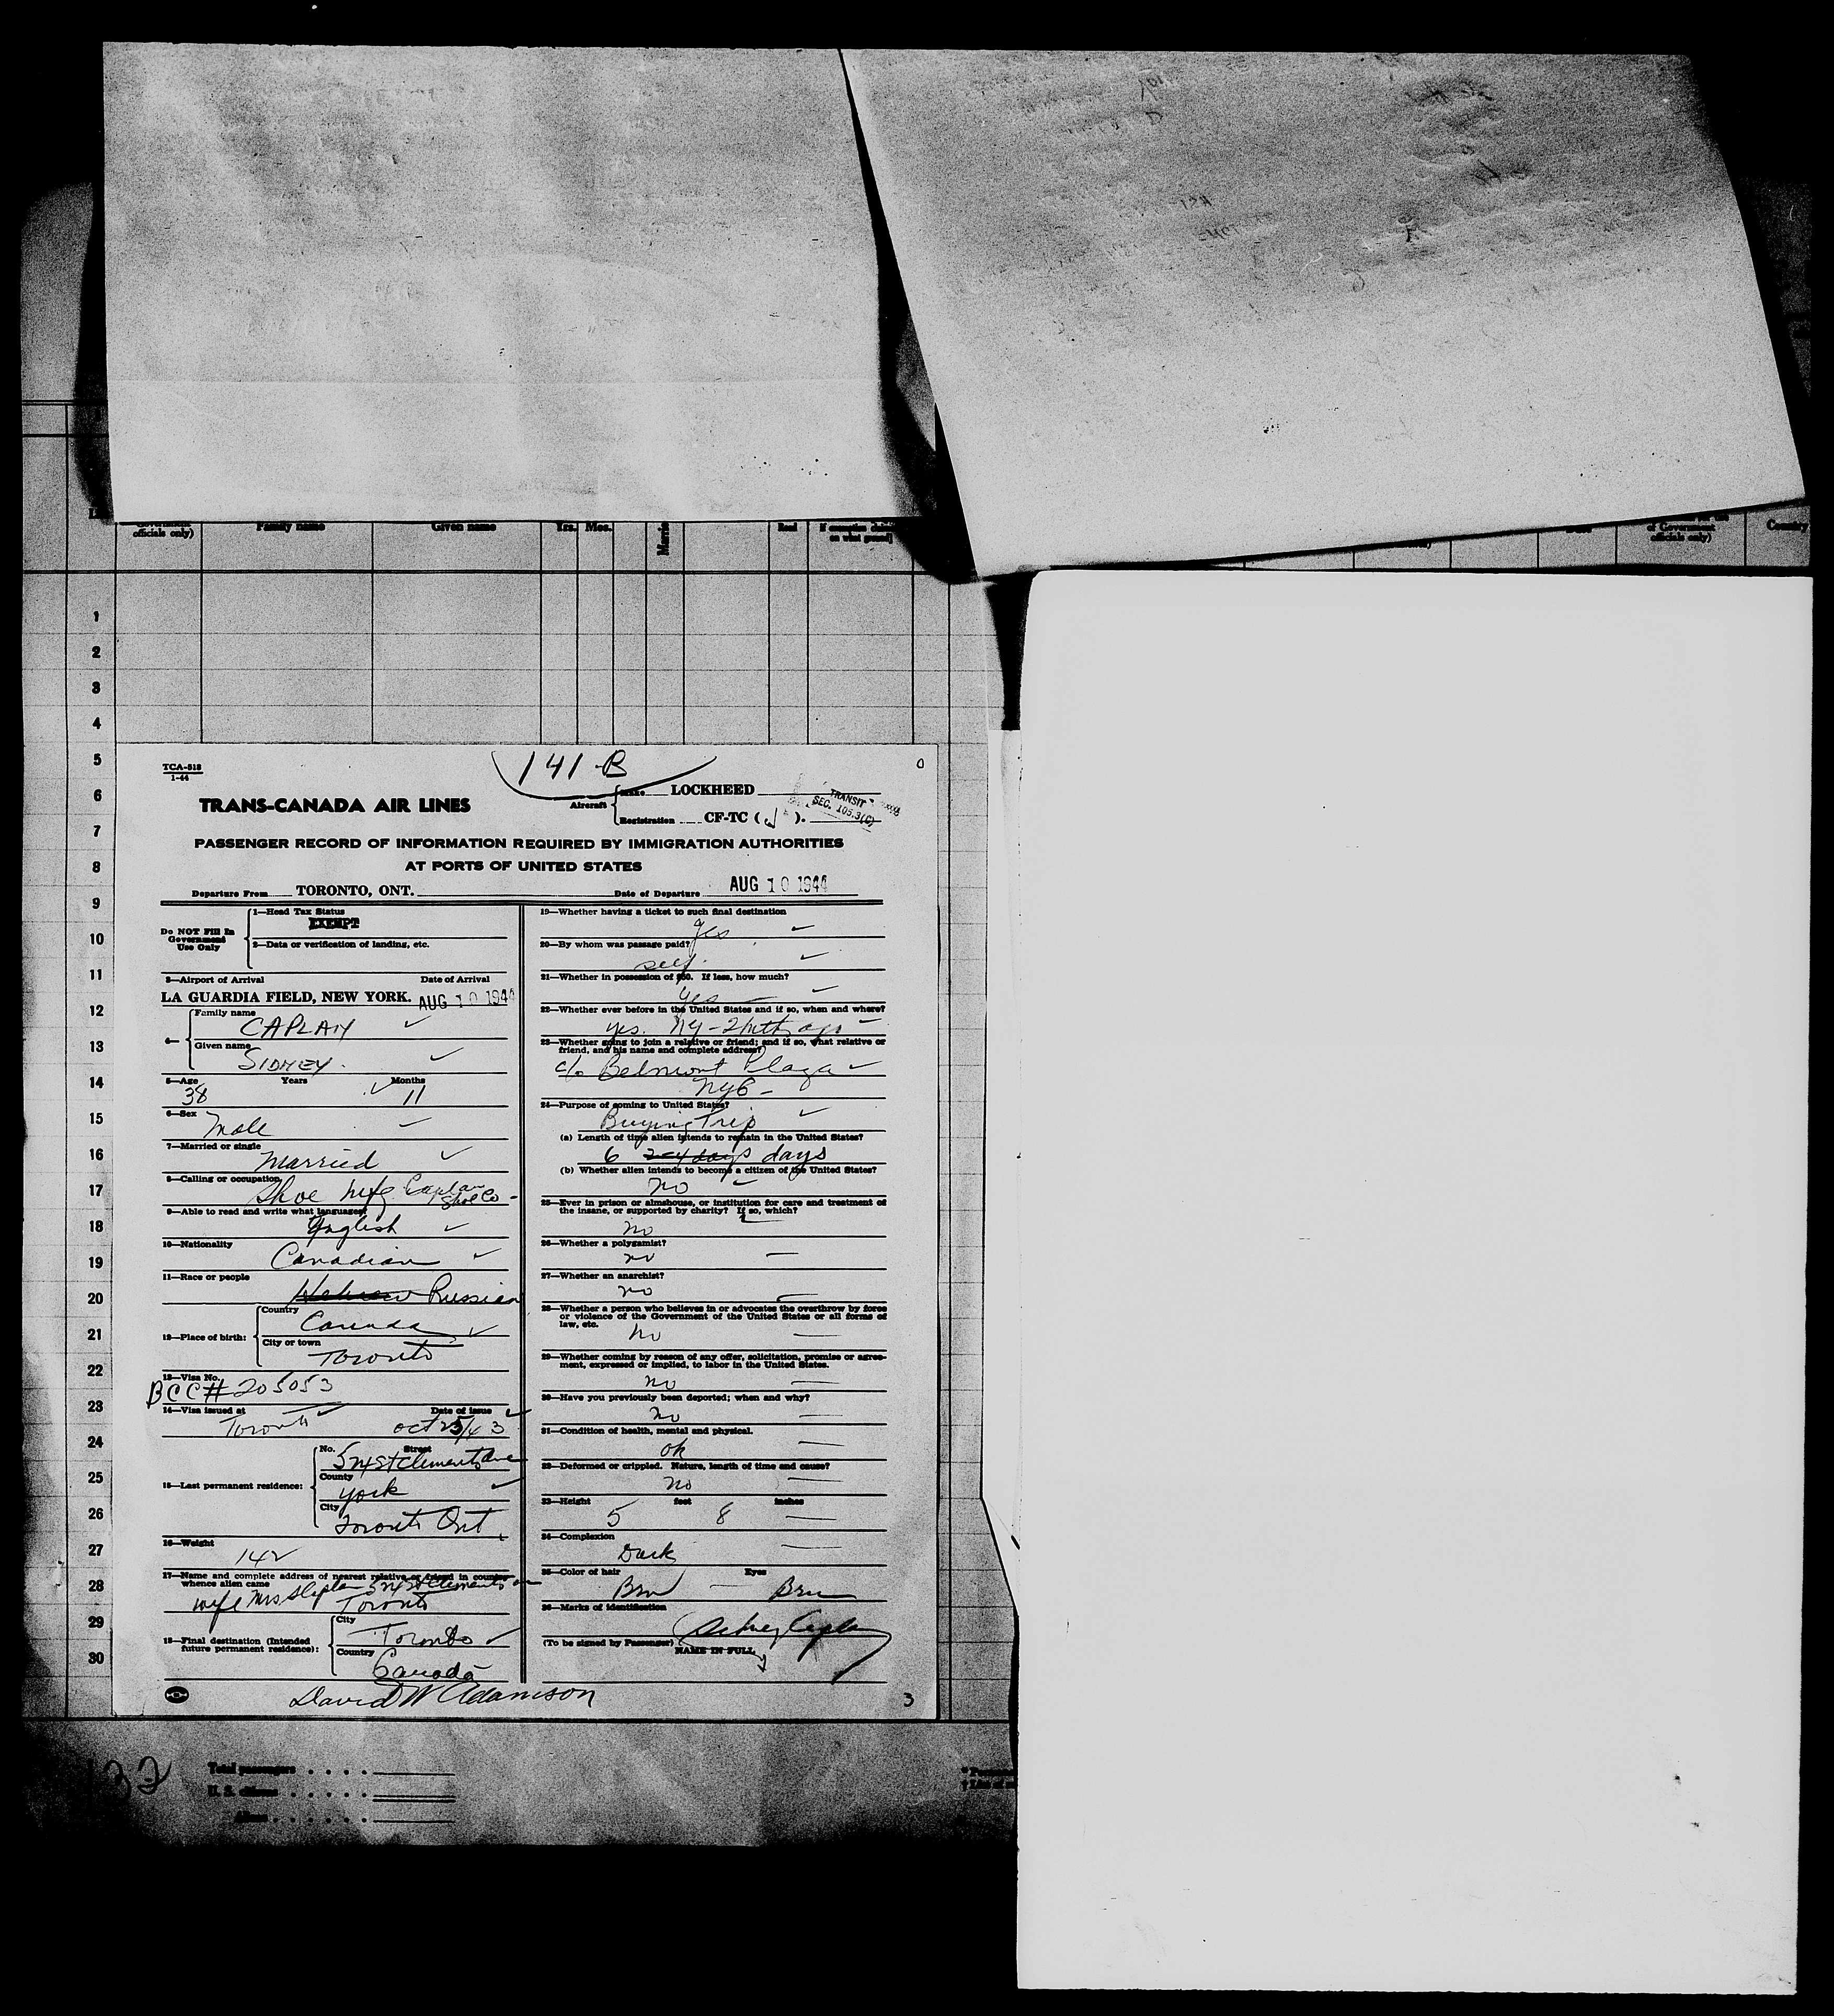 officials only)
Family name
Given name
Yrs.
Mos.
Read
If exemption claimed
on what ground]
of Government
officials only)
Country
1
2
3
4
5
6
7
8
9
10
11
12
13
14
15
16
17
18
19
20
21
22
23
24
25
26
27
28
29
30
141-B
TCA-518
1-44
TRANS-CANADA AIR LINES
Aircraft
Make LOCKHEED
Registration CF-TC ( ).
TRANSIT
SEC. 105.3(C)
PASSENGER RECORD OF INFORMATION REQUIRED BY IMMIGRATION AUTHORITIES
AT PORTS OF UNITED STATES
Departure From TORONTO, ONT. Date of Departure AUG 10 1944
Do NOT Fill In
Government
Use Only
1—Head Tax Status
EXEMPT
2—Data or verification of landing, etc.
3—Airport of Arrival Date of Arrival
LA GUARDIA FIELD, NEW YORK. AUG 10 1944
4—
Family name
CAPLAN
Given name
SIDNEY.
5—Age Years Months
38 11
6—Sex
Male
7—Married or single
Married
8—Calling or occupation
Shoe Mfg. Caplan
Shoe Co -
9—Able to read and write what languages?
English
10—Nationality
Canadian
11—Race or people
Hebrew Russian
12—Place of birth:
Country
Canada
City or town
Toronto
13—Visa No.
BCC# 205053
14—Visa issued at Date of issue
Toronto Oct 25/43
15—Last permanent residence:
No. Street
524 St Clements Ave
County
York
City
Toronto Ont.
16—Weight
142
17—Name and complete address of nearest relative or friend in country
whence alien came
wife Mrs S Caplan 524 St Clements Ave
Toronto
18—Final destination (Intended
future permanent residence):
City
Toronto
Country
Canada
David W Adamson
19—Whether having a ticket to such final destination
Yes
20—By whom was passage paid?
self.
21—Whether in possession of $50. If less, how much?
Yes
22—Whether ever before in the United States and if so, when and where?
yes. NY - 2 mths ago
23—Whether going to join a relative or friend; and if so, what relative or
friend, and his name and complete address?
c/o Belmont Plaza
NYC -
24—Purpose of coming to United States?
Buying Trip
(a) Length of time alien intends to remain in the United States?
6 days
(b) Whether alien intends to become a citizen of the United States?
no
25—Ever in prison or almshouse, or institution for care and treatment of
the insane, or supported by charity? If so, which?
no
26—Whether a polygamist?
no
27—Whether an anarchist?
no
28—Whether a person who believes in or advocates the overthrow by force
or violence of the Government of the United States or all forms of
law, etc.
no
29—Whether coming by reason of any offer, solicitation, promise or agree-
ment, expressed or implied, to labor in the United States.
no
30—Have you previously been deported; when and why?
no
31—Condition of health, mental and physical.
ok
32—Deformed or crippled. Nature, length of time and cause?
no
33—Height feet inches
5 8
34—Complexion
Dark
35—Color of hair Eyes
Brn Brn
36—Marks of identification
Sidney Caplan
(To be signed by Passenger) NAME IN FULL
3
Total passengers
U. S. citizens
Aliens